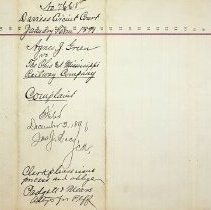 No 7665
Daviess Circuit Court
January Term 1891
Agnes J. Green
vs
The Ohio & Mississippi
Railway Company
Complaint
Filed
December 3, 1890
Clerk please issue
process and oblige
Padgett &
Attys for Plff